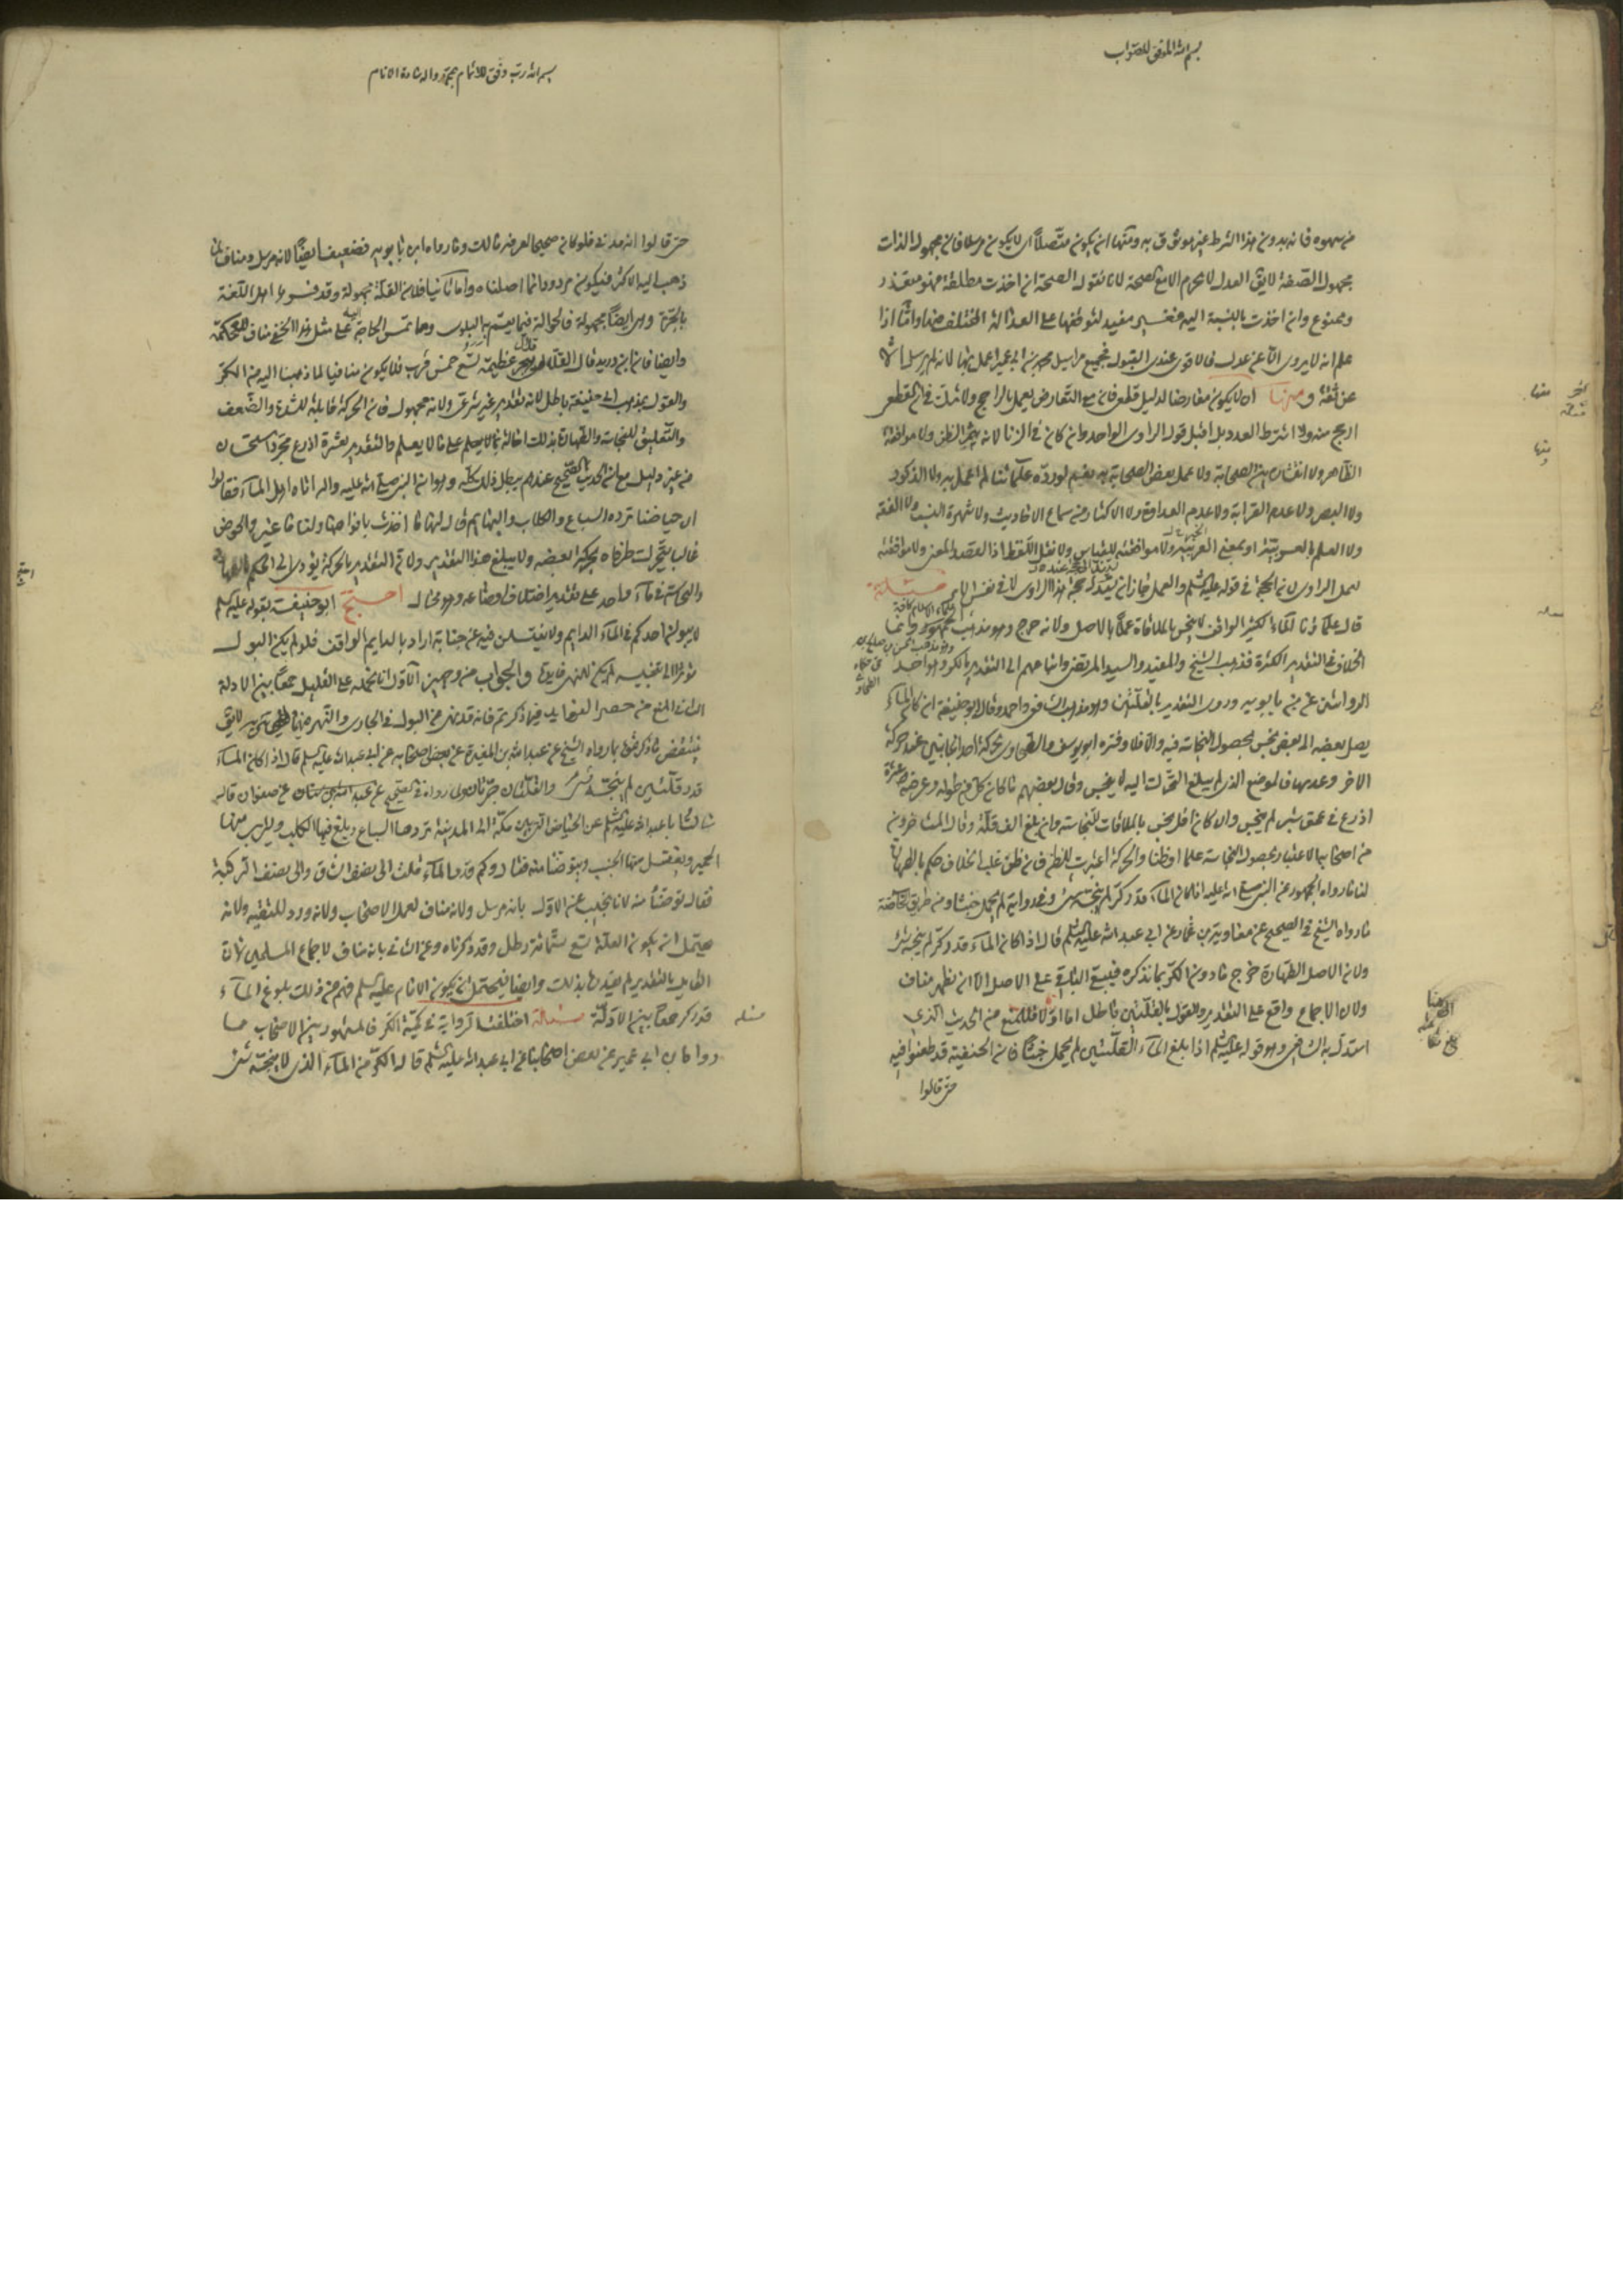 بسم الله الموفق للصواب
من سهوه فانه بدون هذا الشرط غير موثوق به ومنها ان يكون متصلاً اى لا يكون مرسلا فان مجهول الذات
مجهول الصفة لا يق العدل لا يجزم الا مع الصحة لانا نقول الصحة ان اخذت مطلقة فهو متعذر
وممنوع وان اخذت بالنسبة اليه فغير مفيد لتوقفها على العدالة المختلف فيها واما اذا
علم انه لا يروى الا عن عدل فالاقوى عندى القبول فجميع مراسيل محمد بن ابى عمير اعمل بها لانه لم يرسل الا
عن ثقة و منها ان لا يكون معارضا لدليل قطعى فان مع التعارض يعمل بالراجح ولا شك فى ان القطعى
ارجح منه ولا اشترط العدد بل اقبل قول الراوى الواحد وان كان فى الزنا لانه يثمر الظن ولا موافقة
الظاهر ولا انتشاره بين الصحابة ولا عمل بعض الصحابة به نعم لو رده علمائنا لم اعمل به ولا الذكورة
ولا البصر ولا عدم القرابة ولا عدم العداوة ولا الاكثار من سماع الاحاديث ولا شهرة النسب ولا الفقه
ولا العلم بالعربية او بمعنى الحديث ولا موافقته للقياس ولا نقل اللفظ اذا القصد المعنى ولا موافقة
لعمل الراوى لان الحجة فى قوله عليه السلم والعمل جاز ان يستدل بحجة هذا الراوى لا فى نفس الامر مسئلة
قال علماؤنا الماء الكثير الواقف لا ينجس بالملاقاة عملاً بالاصل ولانه حرج وهو مذهب الجمهور وانما
الخلاف فى التقدير الكثرة فذهب الشيخ والمفيد والسيد المرتضى واتباعهم الى التقدير بالكر وهو احد
الروايتين عن ابن بابويه وروى التقدير بالقلتين وهو مذهب الشافعى واحمد وقال ابو حنيفة ان كان الماء
يصل بعضه الى بعض نجس بحصول النجاسة فيه والا فلا وفسره ابو يوسف والطحاوى بحركة احد الجانبين عند حركة
الاخر وعدمها فالموضع الذى لم يبلغ التحرك اليه لا ينجس وقال بعضهم ما كان كل من طوله وعرضه عشرة
اذرع فى عمق شبر لم ينجس وان كان اقل نجس بالملاقات للنجاسة وان بلغ الف قلة وقال المتاخرون
من اصحابه الاعتبار بحصول النجاسة علما او ظنا والحركة اعتبرت للظن فان ظن غلب الخلاف حكم بالطهارة
لنا ما رواه الجمهور عن النبى صلى الله عليه اذا كان الماء قدر كر لم ينجسه شىء وفى رواية لم يحمل خبثا ومن طريق الخاصة
ما رواه الشيخ فى الصحيح عن معاوية بن عمار عن ابى عبد الله عليه السلم قال اذا كان الماء قدر كر لم ينجسه شىء
ولان الاصل الطهارة خرج ما دون الكر بما نذكره فيبقى الباقى على الاصل الا ان يظهر مناف
ولان الاجماع واقع على التقدير والقول بالقلتين باطل اما اولا فللمنع من الحديث الذى
استدل به الشافعى وهو قوله عليه السلم اذا بلغ الماء القلتين لم يحمل خبثاً فان الحنفية قد طعنوا فيه
حتى قالوا
بسم الله رب وفق للاتمام بمحمد واله سادة الانام
حتى قالوا انه مدنى فلو كان صحيحا لعرفه مالك وما رواه ابن بابويه فضعيف ايضاً لانه مرسل ومناف لما
ذهب اليه الاكثر فيكون مردودا لما اصلناه واما ثانيا فلان القلة مجهولة وقد فسرها اهل اللغة
بالجرة وهى ايضاً مجهولة فالحوالة فيما يعم به البلوى ومما تمس الحاجة اليه على مثل هذا الخفى مناف للحكمة
وايضا فان ابن دريد قال القلة من قلال هجر عظيمة تسع خمس قرب فلا يكون منافيا لما ذهبنا اليه من الكر
والقول بمذهب ابى حنيفة باطل لانه تقدير غير شرعى ولانه مجهول فان الحركة قابلة للشدة والضعف
والتعليق للنجاسة والطهارة بذلك احالة بما لا يعلم على ما لا يعلم والتقدير بعشرة اذرع مجرد استحسان
من غير دليل مع ان الحديث الصحيح عندهم يبطل ذلك كله وهو ان النبى صلى الله عليه واله اتاه اهل الماء فقالوا
ان حياضنا ترده السباع والكلاب والبهائم قال لها ما اخذت بافواهها ولنا ما غبر والحوض
غالب يتحرك طرفاه بحركة البعض ولا يبلغ هذا التقدير ولان التقدير بالحركة يؤدى الى الحكم بالطهارة
والنجاسة فى ماء واحد على تقدير اختلاف اوضاعه وهو محال احتج ابو حنيفة بقوله عليه السلم
لا يبولن احدكم فى الماء الدايم ولا يغتسلن فيه عن جنابة اراد بالدايم الواقف فلو لم يكن البول
مؤثرا الى تنجيسه لم يكن للنهى فايدة والجواب من وجهين الاول انا نحمله على القليل جمعاً بين الادلة
الثانى المنع من حصر الفوايد فيما ذكرتم فانه قد نهى عن البول فى الجارى
ينتقض ما ذكرتموه بما رواه الشيخ عن عبد الله بن المغيرة عن بعض اصحابه عن ابى عبد الله عليه السلم قال اذا كان الماء
قدر قلتين لم ينجسه شىء والقلتان جرتان وبما رواه فى الصحيح عن عبد الله بن سنان عن صفوان قال
سالت ابا عبد الله عليه السلم عن الحياض التى بين مكة الى المدينة تردها السباع ويلغ فيها الكلب ويشرب منها
الحمير ويغتسل منها الجنب ويتوضا منه فقال وكم قدر الماء قلت الى نصف الساق والى نصف الركبة
فقال توضئأ منه لانا نجيب عن الاول بانه مرسل ولانه مناف لعمل الاصحاب ولانه ورد للتقية ولانه
يحتمل ان يكون القلة تسع ستمائة رطل وقد ذكرناه وعن الثانى بانه مناف لاجماع المسلمين لان
القايل بالتقدير لم يقدرها بذلك وايضا فيحتمل ان يكون الامام عليه السلم فهم من ذلك بلوغ الماء
قدر كر جمعاً بين الادلة مسئلة اختلفت الرواية فى كمية الكر فالمشهور بين الاصحاب ما
رواه ابن ابى عمير عن بعض اصحابنا عن ابى عبد الله عليه السلم قال الكر من الماء الذى لا ينجسه شىء